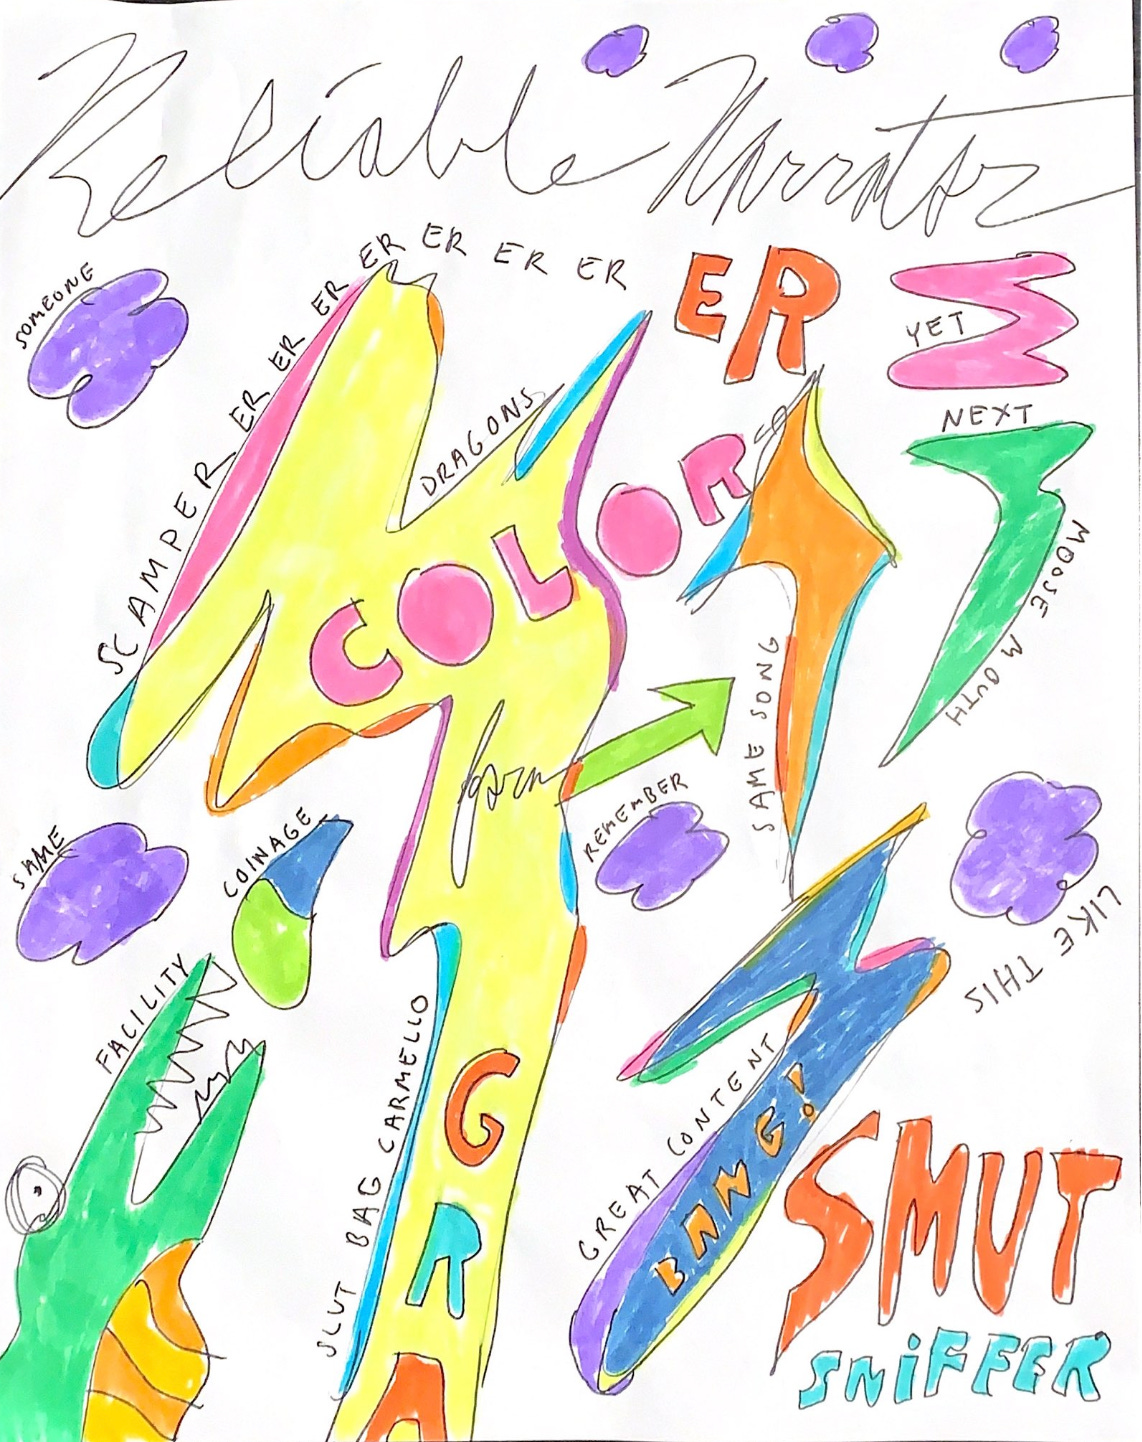 Reliable Narrator
SOMEONE
SCAMPER ER ER ER ER ER ER ER ER
YET
NEXT
DRAGONS
COLOR
MOOSE MOUTH
SAME SONG
form
REMEMBER
SAME
COINAGE
LIKE THIS
FACILITY
SLUT BAG CARMELLO
GREAT CONTENT
BANG!
GRA
SMUT
SNiFFER